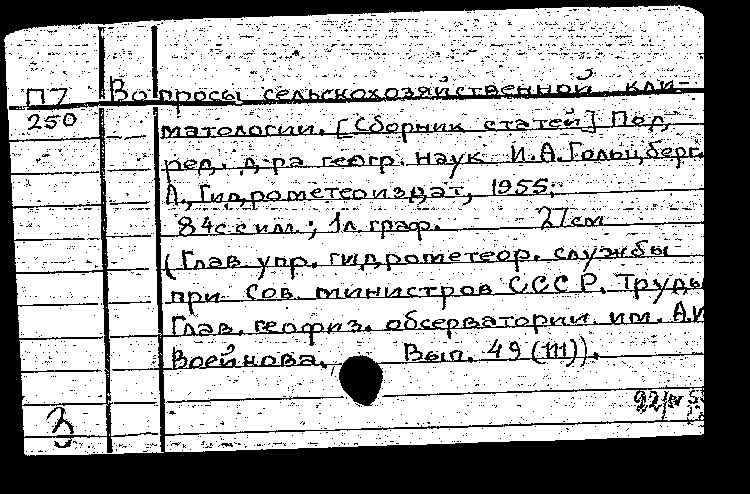 П7 Вопросы сельскохозяйственной кли-
250 матологии. [Сборник статей] Под
ред. д-ра геогр. наук И.А. Гольцберг.
Л., Гидрометеоиздат, 1955.
84с с илл.; 1л. граф. 27см
(Глав. упр. гидрометеор. службы
при Сов. министров СССР. Труды
Глав. геофиз. обсерватории им. А.И
Воейкова. Вып. 49 (111)).
З